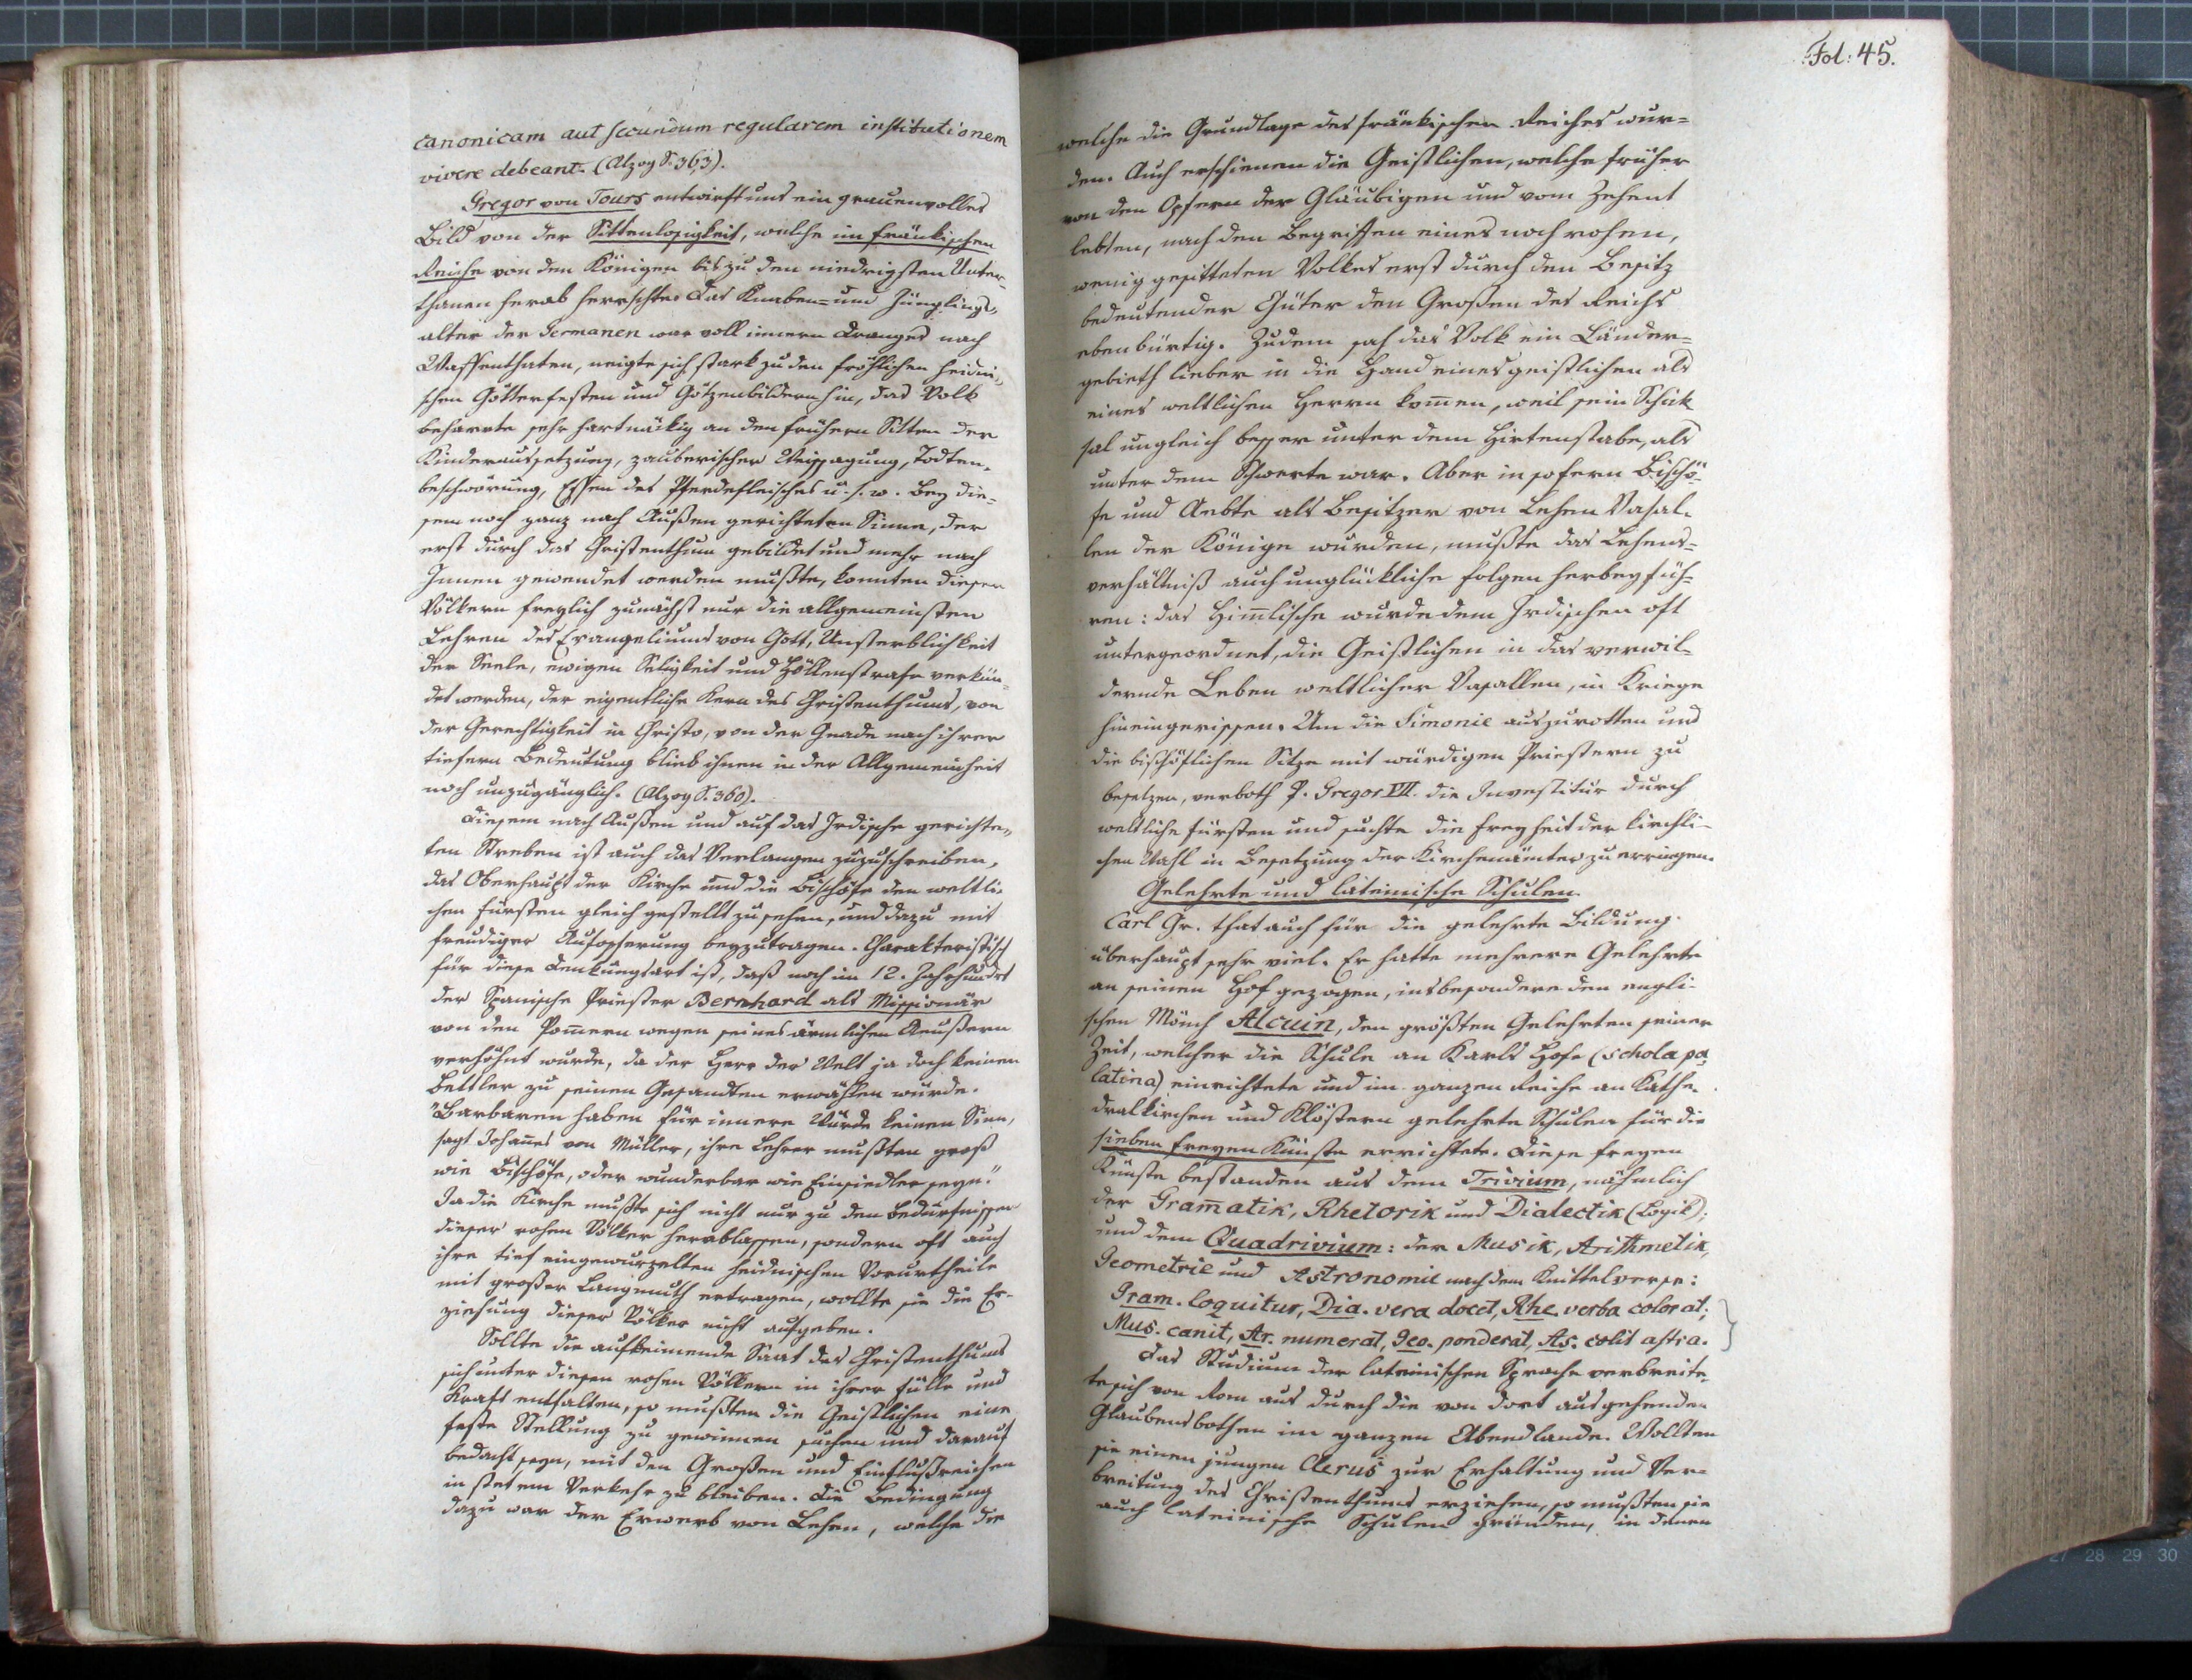 canonicam aut secundum regularem institutionem
vivere debeant. (Alzog S. 363).
Gregor von Tours entwirft uns ein grauenvolles
Bild von der Sittenlosigkeit, welche im fränkischen
Reiche von den Königen bis zu den niedrigsten Unter-
thanen herab herrschte. Das Knaben- und Jünglings-
alter der Germanen war voll innern Dranges nach
Waffenthaten, neigte sich stark zu den fröhlichen heidni-
schen Götterfesten und Götzenbildern hin, das Volk
beharrte sehr hartnäckig an den frühern Sitten der
Kinderaussetzung, zauberischer Weissagung, Todten-
beschwörung, Essen des Pferdefleisches u. s. w. Bey die-
sem noch ganz nach Außen gerichteten Sinne, der
erst durch das Christenthum gebildet und mehr nach
Innen gewendet werden mußte, konnten diesen
Völkern freylich zunächst nur die allgemeinsten
Lehren des Evangeliums von Gott, Unsterblichkeit
der Seele, ewigen Seligkeit und Höllenstrafe verkün-
det werden, der eigentliche Kern des Christenthums, von
der Gerechtigkeit in Christo, von der Gnade nach ihrer
tiefern Bedeutung blieb ihnen in der Allgemeinheit
noch unzugänglich. (Alzog S. 360).
Diesem nach Außen und auf das Irdische gerichte-
ten Streben ist auch das Verlangen zuzuschreiben,
das Oberhaupt der Kirche und die Bischöfe den weltli-
chen Fürsten gleich gestellt zu sehen, und dazu mit
freudiger Aufopferung beyzutragen. Charakteristisch
für diese Denkungsart ist, daß noch im 12. Jahrhundert
der Spanische Priester Bernhard als Missionär
von den Pom̄ern wegen seines ärmlichen Aeußern
verhöhnt wurde, da der Herr der Welt ja doch keinen
Bettler zu seinen Gesandten erwählen würde.
"Barbaren haben für innere Würde keinen Sinn,
sagt Johan̄es von Müller, ihre Lehrer mußten groß
wie Bischöfe, oder wunderbar wie Einsiedler seyn."
Ja die Kirche mußte sich nicht nur zu den Bedürfnissen
dieser rohen Völker herablassen, sondern oft auch
ihre tief eingewurzelten heidnischen Vorurtheile
mit großer Langmuth ertragen, wollte sie die Er-
ziehung dieser Völker nicht aufgeben.
Sollte die aufkeimende Saat des Christenthums
sich unter diesen rohen Völkern in ihrer Fülle und
Kraft entfalten, so mußten die Geistlichen eine
feste Stellung zu gewinnen suchen und darauf
bedacht seyn, mit den Großen und Einflußreichen
in stetem Verkehr zu bleiben. Die Bedingung
dazu war der Erwerb von Lehen, welche die
Fol: 45.
welche die Grundlage des fränkischen Reiches wur-
den. Auch erschienen die Geistlichen, welche früher
von den Opfern der Gläubigen und vom Zehent
lebten, nach den Begriffen eines noch rohen,
wenig gesitteten Volkes erst durch den Besitz
bedeutender Güter den Großen des Reichs
ebenbürtig. Zudem sah das Volk ein Länder-
gebieth lieber in die Hand eines geistlichen als
eines weltlichen Herrn kom̄en, weil sein Schick
sal ungleich besser unter dem Hirtenstabe, als
unter dem Schwerte war. Aber in sofern Bischö-
fe und Aebte als Besitzer von Lehen Vasal-
len der Könige wurden, mußte das Lehens-
verhältniß auch unglückliche Folgen herbeyfüh-
ren: das Him̄lische wurde dem Irdischen oft
untergeordnet, die Geistlichen in das verwil-
dernde Leben weltlicher Vasallen, in Kriege
hineingerissen. Um die Simonie auszurotten und
die bischöflichen Sitze mit würdigen Priestern zu
besetzen, verboth P. Gregor VII. die Investitur durch
weltliche Fürsten und suchte die Freyheit der kirchli-
chen Wahl in Besetzung der Kirchenämter zu erringen.
Gelehrte und lateinische Schulen.
Carl Gr. that auch für die gelehrte Bildung
überhaupt sehr viel. Er hatte mehrere Gelehrte
an seinen Hof gezogen, insbesondere den engli-
schen Mönch Alcuin, den größten Gelehrten seiner
Zeit, welcher die Schule an Karls Hofe (schola pa-
latina) einrichtete und im ganzen Reiche an Kathe-
dralkirchen und Klöstern gelehrte Schulen für die
sieben freyen Künste errichtete. Diese freyen
Künste bestanden aus dem Trivium, nähmlich
der Gram̄atik, Rhetorik und Dialectik (Logik);
und dem Quadrivium: der Musik, Arithmetik,
Geometrie und Astronomie nach dem Knittelverse:
Gram. loquitur, Dia. vera docet, Rhe. verba colorat;
Mus. canit, Ar. numerat, Geo. ponderat, As. colit astra.
Das Studium der lateinischen Sprache verbreite-
te sich von Rom aus durch die von dort ausgehenden
Glaubensbothen im ganzen Abendlande. Wollten
sie einen jungen Clerus zur Erhaltung und Ver-
breitung des Christenthums erziehen, so mußten sie
auch lateinische Schulen gründen, in denen
27 28 29 30